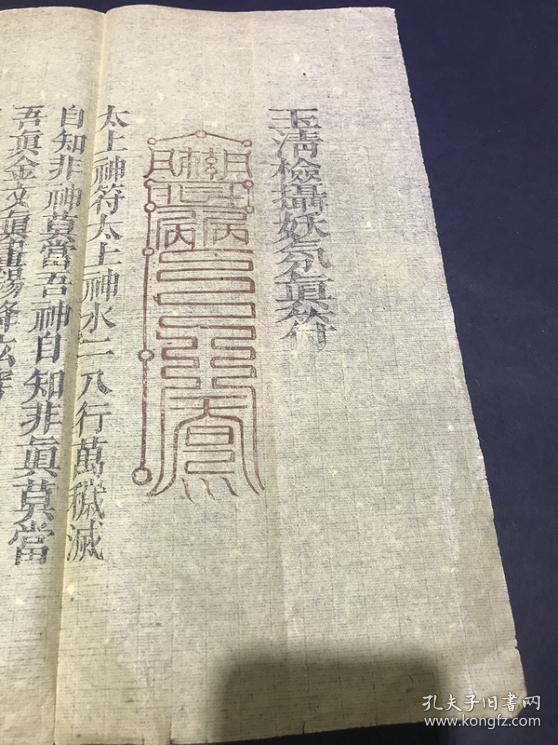 玉清檢攝妖氛真符
太上神符太上神水二八行萬穢滅
自知非神莫當吾神自知非真莫當
吾真金文
孔夫子旧书网
www.kongfz.com